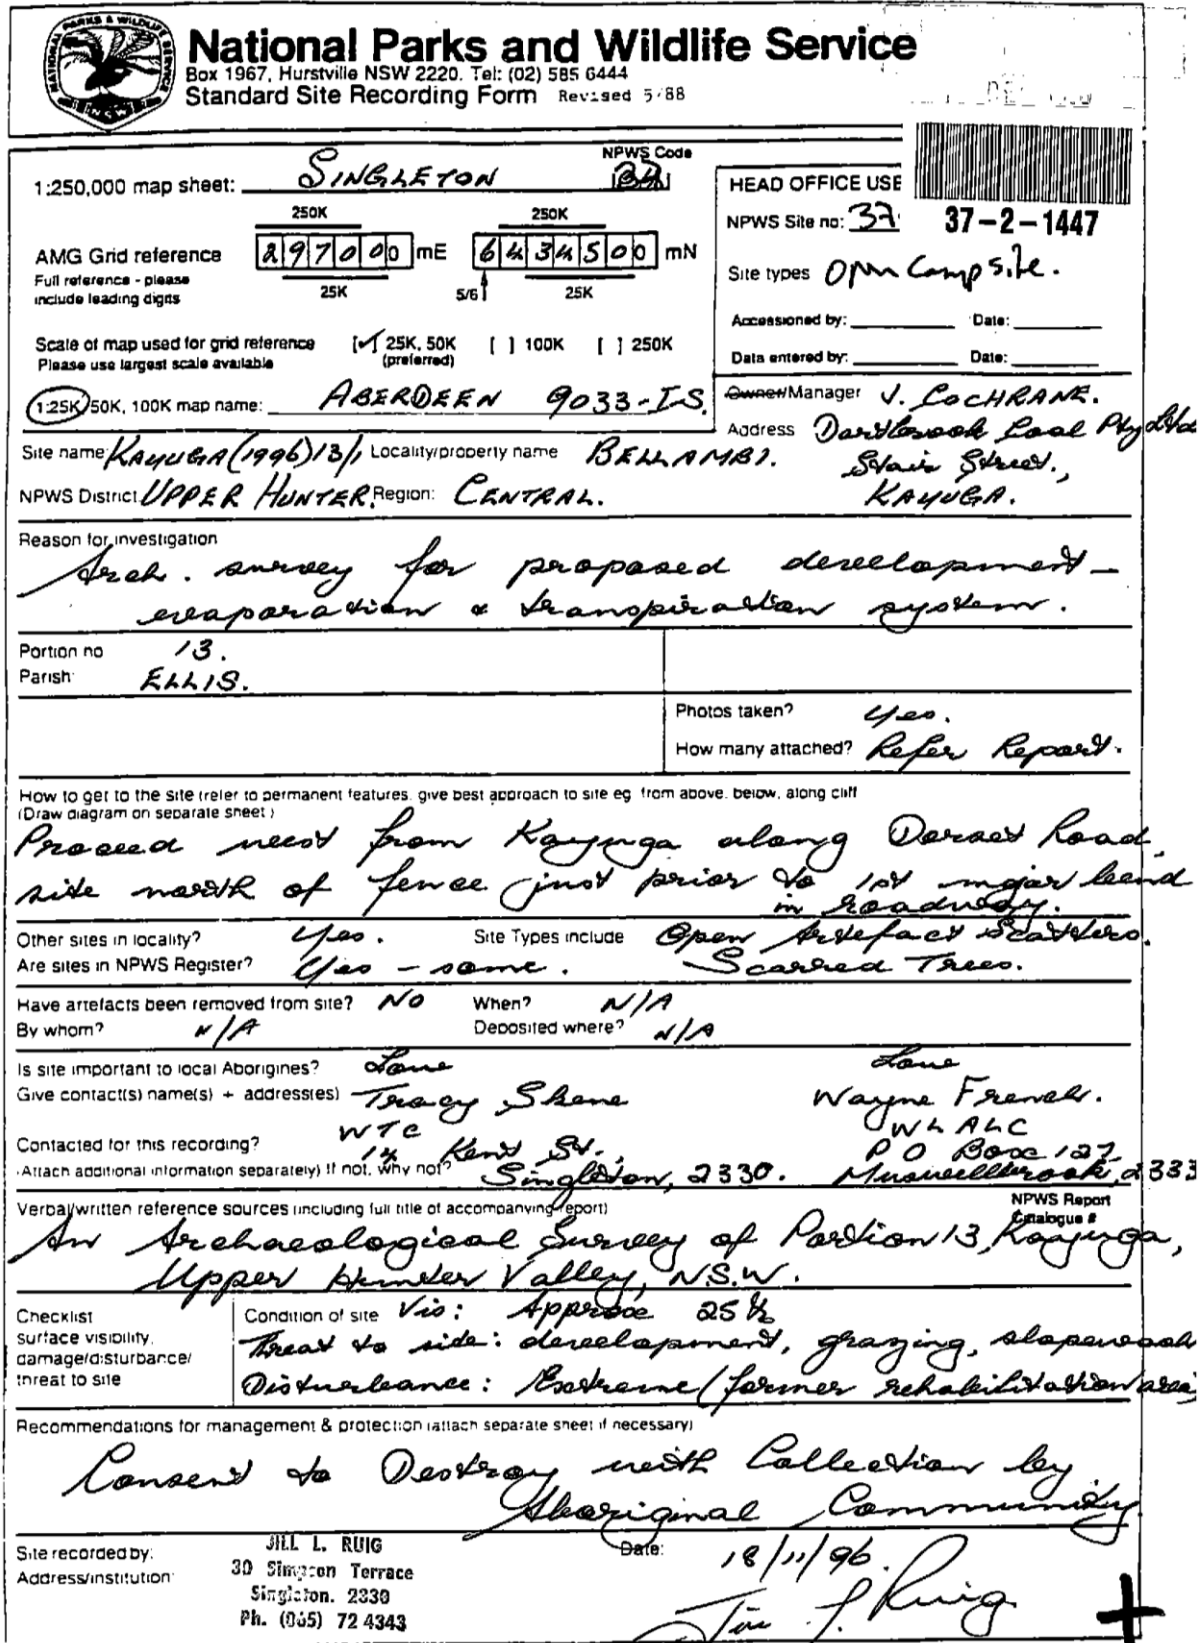 NATIONAL PARKS & WILDLIFE SERVICE
N.S.W.
National Parks and Wildlife Service
Box 1967, Hurstville NSW 2220. Tel: (02) 585 6444
Standard Site Recording Form Revised 5/88
1:250,000 map sheet: SINGLETON NPWS Code
HEAD OFFICE USE
NPWS Site no: 37 37-2-1447
250K 250K
AMG Grid reference 297000 mE 6434500 mN
Full reference - please include leading digits
25K 5/6 25K
Site types Open Campsite.
Accessioned by: Date:
Data entered by: Date:
Scale of map used for grid reference [✓] 25K, 50K [ ] 100K [ ] 250K
Please use largest scale available (preferred)
1:25K, 50K, 100K map name: ABERDEEN 9033-I-S.
Owner/Manager J. COCHRANE.
Address Dartbrook Coal Pty Ltd
Stair Street,
KAYUGA.
Site name: KAYUGA (1996) 13/1 Locality/property name BELLAMBI.
NPWS District: UPPER HUNTER. Region: CENTRAL.
Reason for investigation
Arch. survey for proposed development -
evaporation & transpiration system.
Portion no 13.
Parish: ELLIS.
Photos taken? Yes.
How many attached? Refer Report.
How to get to the site (refer to permanent features, give best approach to site eg. from above, below, along cliff
(Draw diagram on separate sheet.)
Proceed west from Kayuga along Dorset Road,
site north of fence just prior to 1st major bend
in roadway.
Other sites in locality? Yes. Site Types include Open Artefact Scatters.
Are sites in NPWS Register? Yes - some. Scarred Trees.
Have artefacts been removed from site? No When? N/A
By whom? N/A Deposited where? N/A
Is site important to local Aborigines?
Give contact(s) name(s) + address(es) Tracy Skene Wayne French.
WTC WLALC
Contacted for this recording? 14 Kent St., P O Box 127
(Attach additional information separately) If not, why not? Singleton, 2330. Muswellbrook, 2333
Verbal/written reference sources (including full title of accompanying report) NPWS Report
Catalogue #
An Archaeological Survey of Portion 13, Kayuga,
Upper Hunter Valley, N.S.W.
Checklist
surface visibility,
damage/disturbance/
threat to site
Condition of site Vis: Approx 25%
Threat to site: development, grazing, slopewash
Disturbance: Extreme (former rehabilitation area)
Recommendations for management & protection (attach separate sheet if necessary)
Consent to Destroy with Collection by
Aboriginal Community
Site recorded by: JILL L. RUIG Date: 18/11/96.
Address/institution: 30 Simpson Terrace
Singleton. 2330
Ph. (065) 72 4343